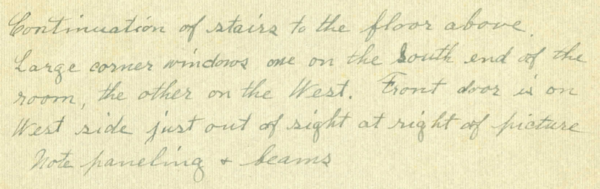 Continuation of stairs to the floor above.
Large corner windows one on the South end of the
room, the other on the West. Front door is on
West side just out of sight at right of picture
Note paneling + beams